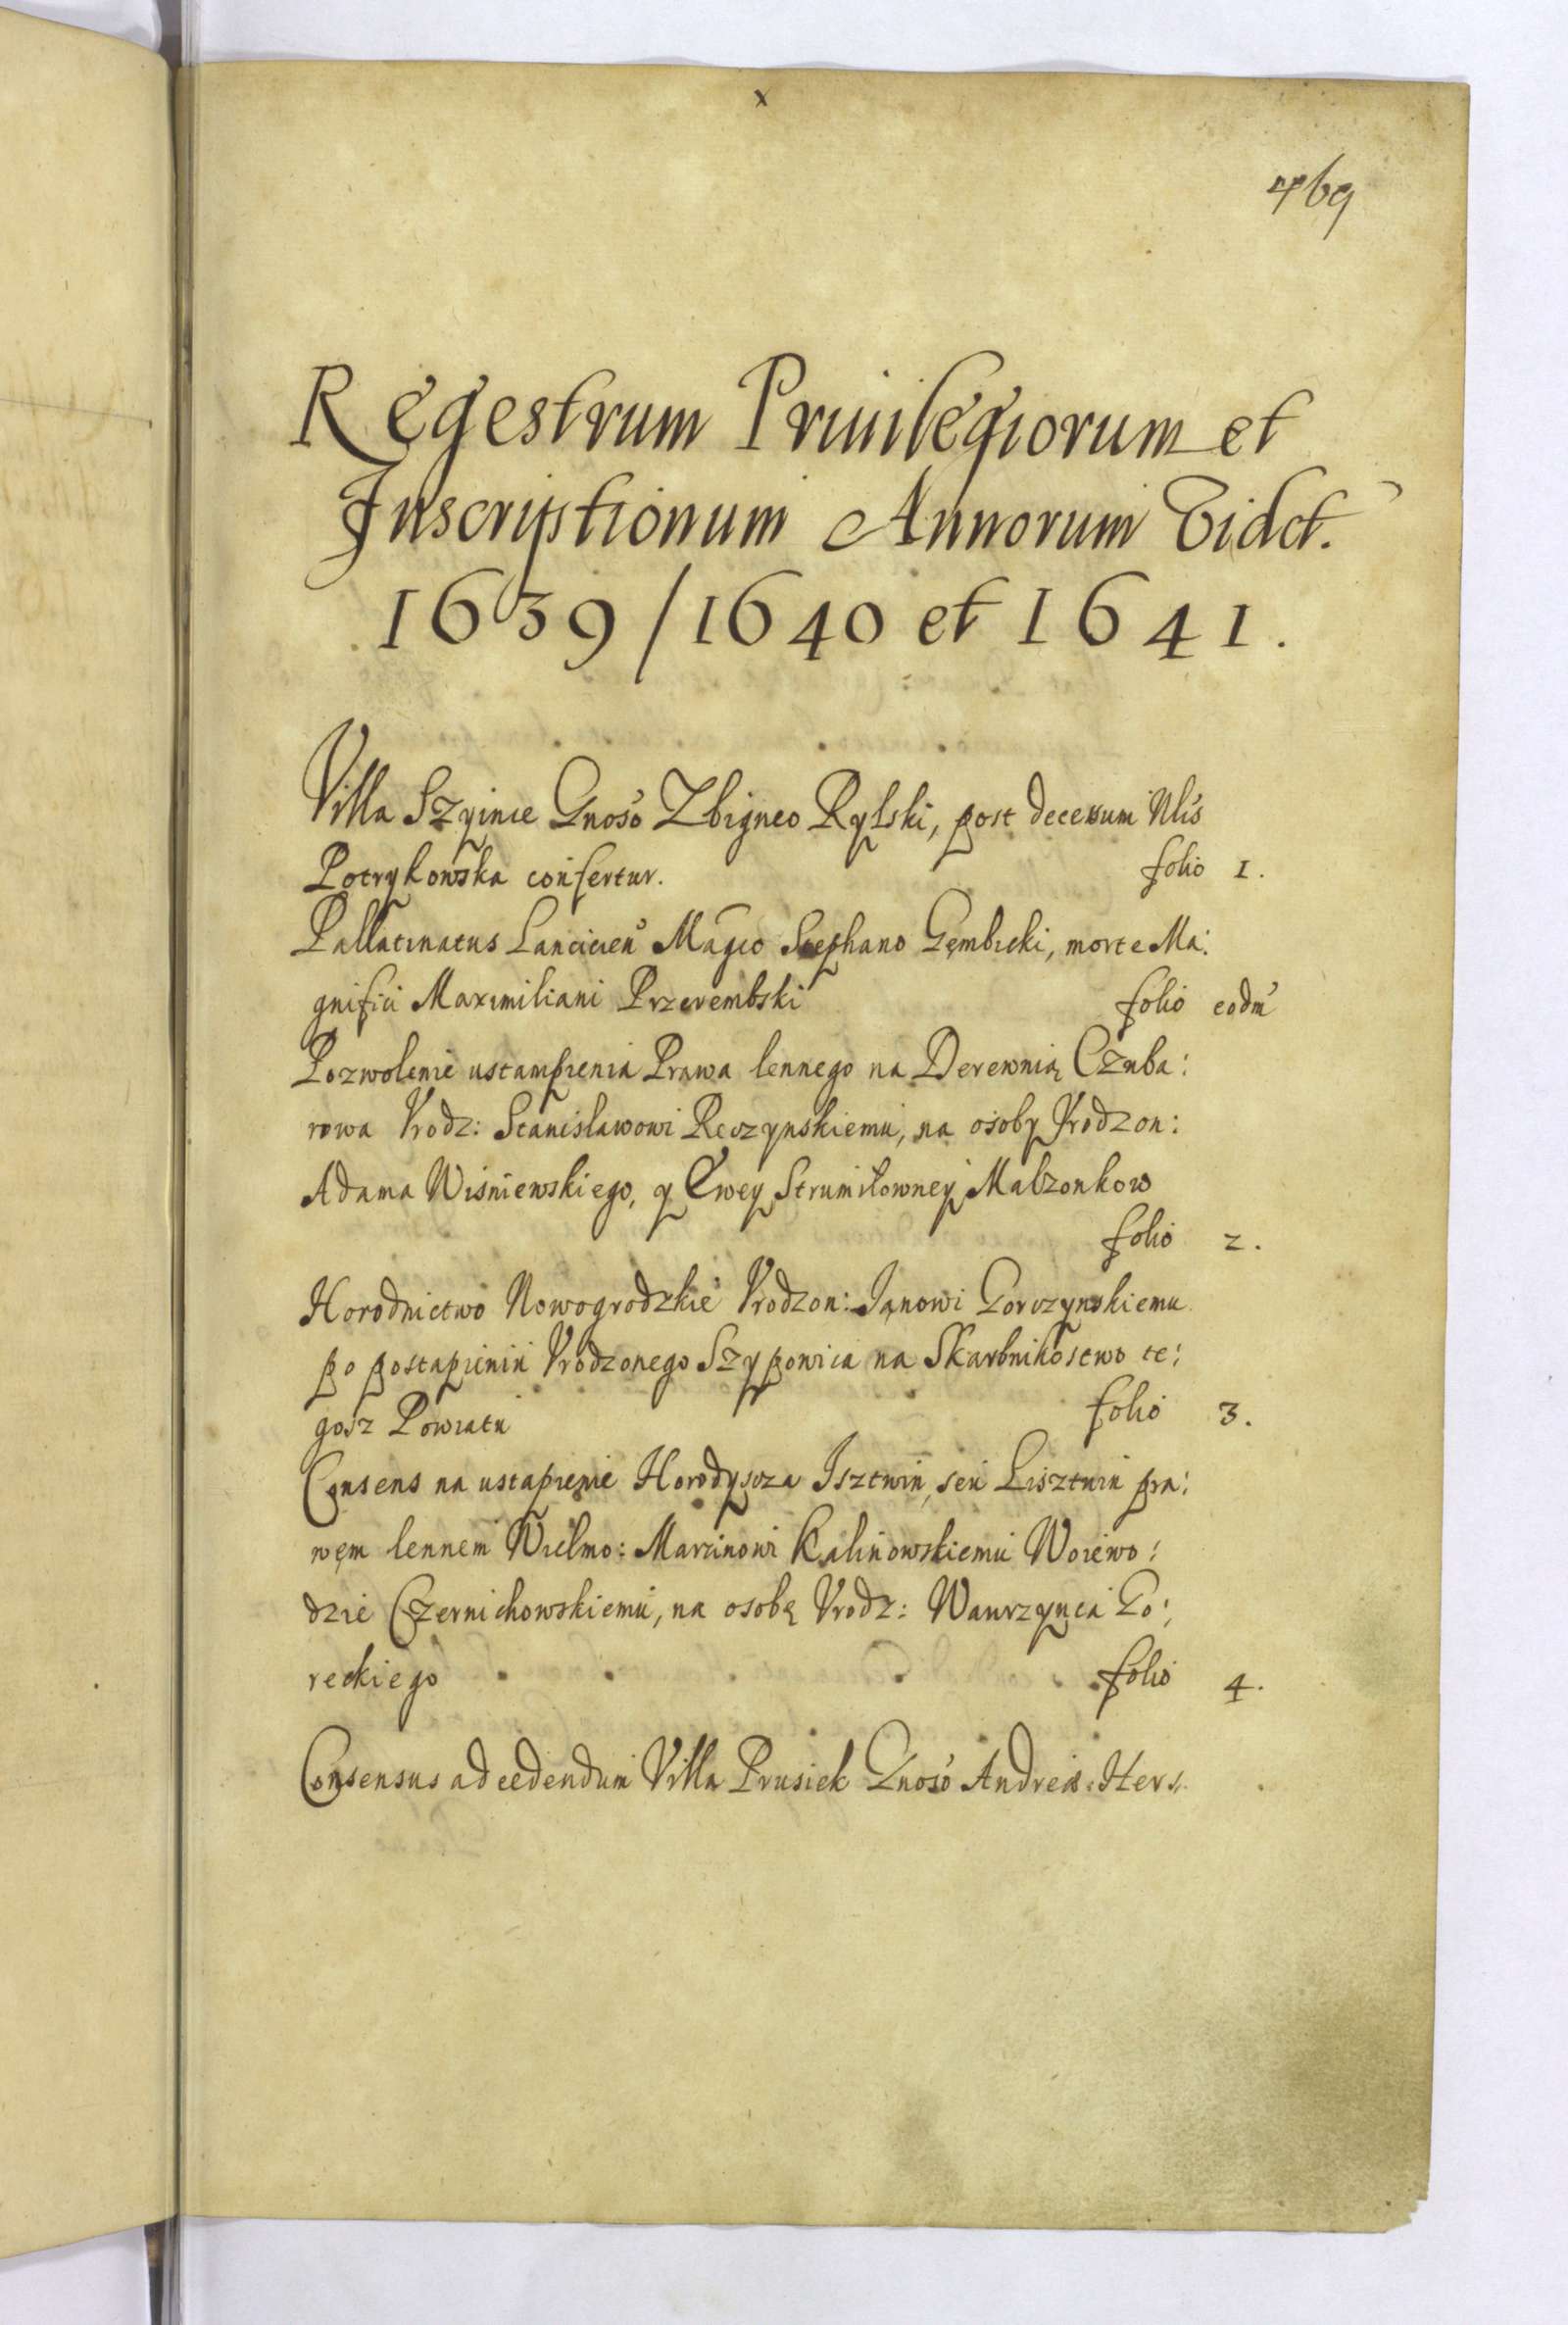 x
469
Regestrum Priuilegiorum et
Inscriptionum Annorum Vidct.
1639/1640 et 1641.
Villa Szyince Gnoso Zbigneo Rylski, post decessum Nlis
Potrykowska confertur. folio 1.
Pallatinatus Lancicien Magco Stephano Gembicki, morte Ma:
gnifici Maximiliani Przerembski folio eodm
Pozwolenie ustampienia Prawa lennego na Derewnią Czuba:
rowa Vrodz: Stanisławowi Reczynskiemu, na osoby Vrodzon:
Adama Wisniewskiego, y Ewey Strumiłowney Malzonkow
folio 2.
Horodnictwo Nowogrodzkie Vrodzon: Janowi Gorczynskiemu
po postapieniu Vrodzonego Szypowica na Skarbnikostwo te:
gosz Powiatu folio 3.
Consens na ustapienie Horodyscza Isztwin, seu Lisztwin pra:
wem lennem Wielmo: Marcinowi Kalinowskiemu Woiewo:
dzie Czernichowskiemu, na osobę Vrodz: Wawrzynca Go:
reckiego folio 4.
Consensus ad cedendum Villa Prusiek Gnoso Andreæ Hers